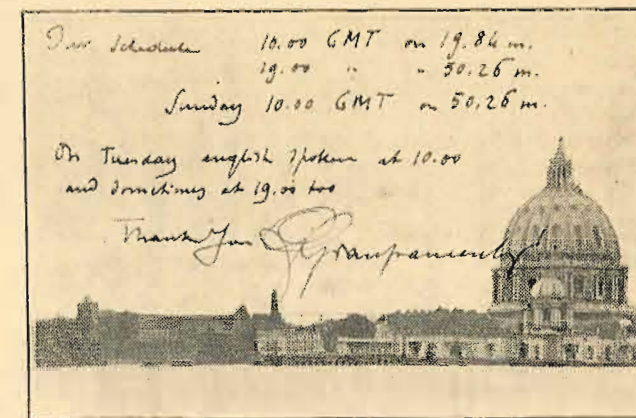 Our Schedule 10.00 GMT on 19.84 m.
19.00 " " 50.26 m.
Sunday 10.00 GMT on 50.26 m.
On Tuesday english spoken at 10.00
and sometimes at 19.00 too
Thank You